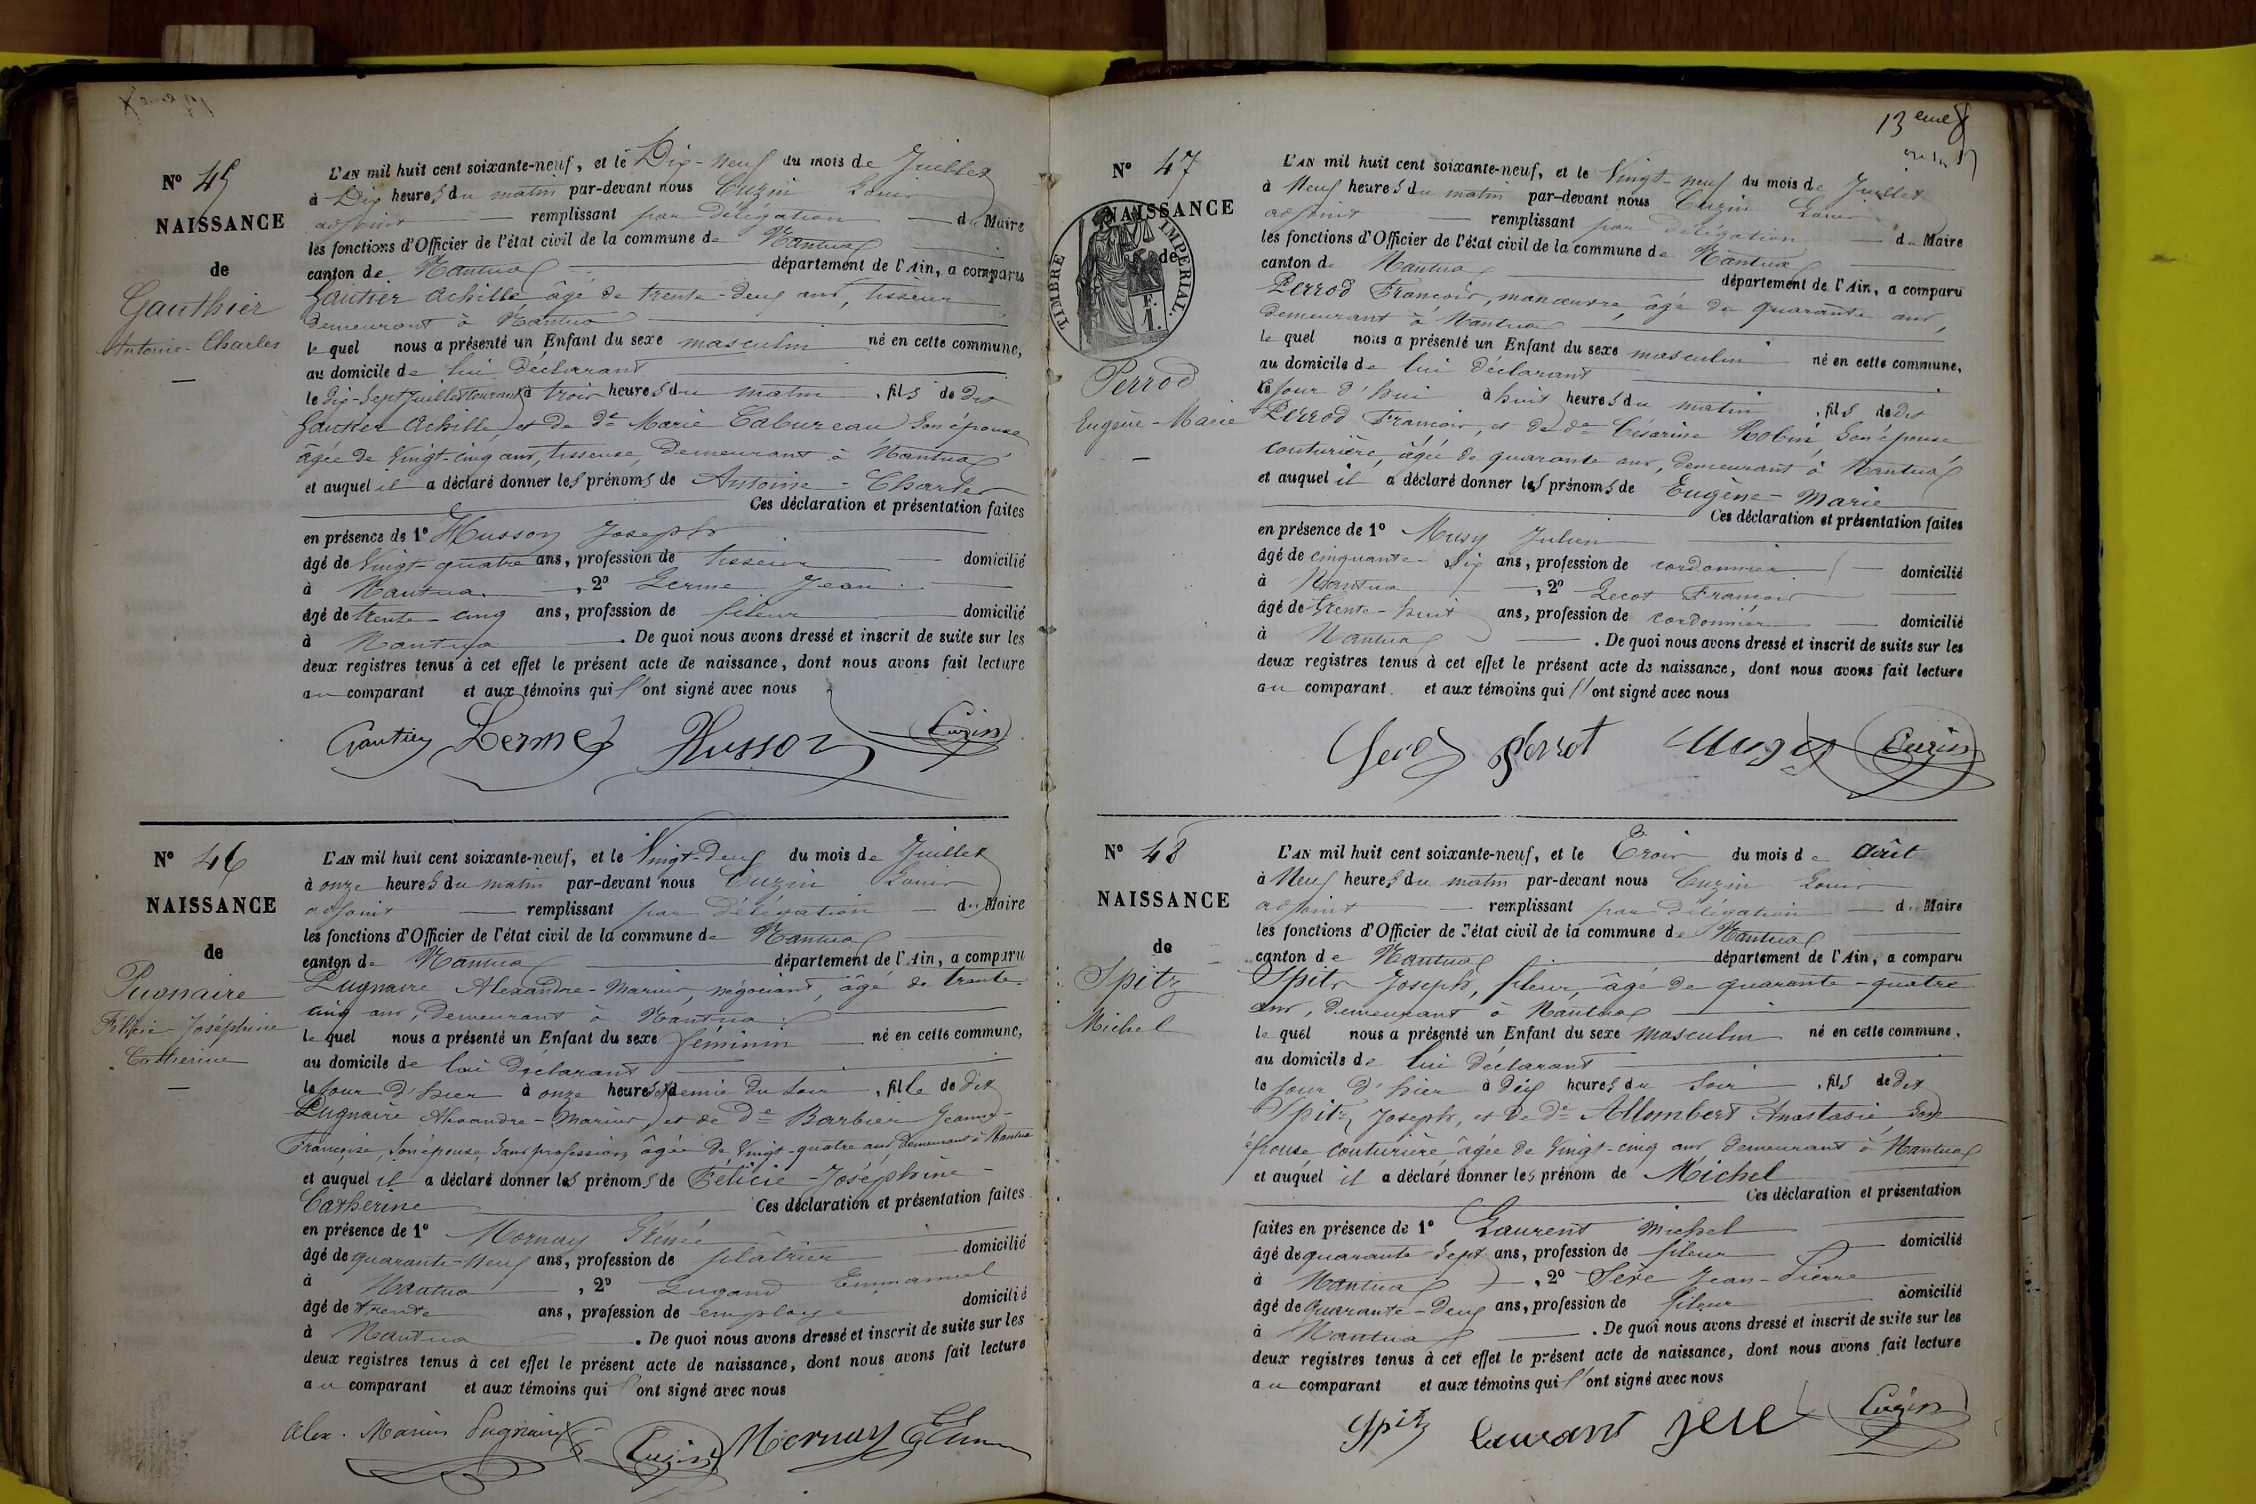 N° 45
NAISSANCE
de
Gauthier
Antoine-Charles
L'AN mil huit cent soixante-neuf, et le Dix-neuf du mois de Juillet
à Dix heures du matin par-devant nous Cuzin Louis
adjoint remplissant par Délégation du Maire
les fonctions d'Officier de l'état civil de la commune de Nantua
canton de Nantua département de l'Ain, a comparu
Gautier Achille, âgé de trente-deux ans, tisseur
demeurant à Nantua
lequel nous a présenté un Enfant du sexe masculin né en cette commune,
au domicile de lui Déclarant
le dix-sept Juillet courant à trois heures du matin, fils de dit
Gautier Achille, et de de Marie Cabureau son épouse
âgée de vingt-cinq ans, tisseuse, demeurant à Nantua
et auquel il a déclaré donner les prénoms de Antoine-Charles
Ces déclaration et présentation faites
en présence de 1° Husson Joseph
âgé de vingt-quatre ans, profession de tisseur domicilié
à Nantua, 2° Lerme Jean
âgé de trente-cinq ans, profession de fileur domicilié
à Nantua. De quoi nous avons dressé et inscrit de suite sur les
deux registres tenus à cet effet le présent acte de naissance, dont nous avons fait lecture
au comparant et aux témoins qui l'ont signé avec nous
Gautier Lerme Husson Cuzin
N° 46
NAISSANCE
de
Pugnaire
Félicie-Joséphine
Catherine
L'AN mil huit cent soixante-neuf, et le Vingt-deux du mois de Juillet
à onze heures du matin par-devant nous Cuzin Louis
adjoint remplissant par Délégation du Maire
les fonctions d'Officier de l'état civil de la commune de Nantua
canton de Nantua département de l'Ain, a comparu
Pugnaire Alexandre-Marius, négociant, âgé de trente-
cinq ans, demeurant à Nantua
lequel nous a présenté un Enfant du sexe féminin né en cette commune,
au domicile de lui déclarant
le jour d'hier à onze heures et demie du soir, fille de dit
Pugnaire Alexandre-Marius, et de De Barbier Jeanne-
Françoise, son épouse, sans profession, âgée de vingt-quatre ans, demeurant à Nantua
et auquel il a déclaré donner les prénoms de Félicie-Joséphine-
Catherine Ces déclaration et présentation faites
en présence de 1° Mornay
âgé de quarante-neuf ans, profession de plâtrier domicilié
à Nantua, 2° Gugand Emmanuel
âgé de trente ans, profession de employé domicilié
à Nantua. De quoi nous avons dressé et inscrit de suite sur les
deux registres tenus à cet effet le présent acte de naissance, dont nous avons fait lecture
au comparant et aux témoins qui l'ont signé avec nous
Alex. Marius Pugnaire Cuzin Mornay
13eme
N° 47
NAISSANCE
de
TIMBRE IMPERIAL.
F.
1.
Perrod
Eugène-Marie
L'AN mil huit cent soixante-neuf, et le Vingt-neuf du mois de Juillet
à Neuf heures du matin par-devant nous Cuzin Louis
adjoint remplissant par Délégation du Maire
les fonctions d'Officier de l'état civil de la commune de Nantua
canton de Nantua département de l'Ain, a comparu
Perrod François, manœuvre, âgé de quarante ans,
demeurant à Nantua
lequel nous a présenté un Enfant du sexe masculin né en cette commune,
au domicile de lui déclarant
ce jour d'hui à huit heures du matin, fils de dit
Perrod François, et de de Césarine Robin son épouse
couturière, âgée de quarante ans, demeurant à Nantua
et auquel il a déclaré donner les prénoms de Eugène-Marie
Ces déclaration et présentation faites
en présence de 1° Musy Julien
âgé de cinquante-six ans, profession de cordonnier domicilié
à Nantua, 2° Lecot François
âgé de trente-huit ans, profession de cordonnier domicilié
à Nantua. De quoi nous avons dressé et inscrit de suite sur les
deux registres tenus à cet effet le présent acte de naissance, dont nous avons fait lecture
au comparant et aux témoins qui l'ont signé avec nous
Perrot Musy Cuzin
N° 48
NAISSANCE
de
Spitz
Michel
L'AN mil huit cent soixante-neuf, et le Trois du mois de Août
à Neuf heures du matin par-devant nous Cuzin Louis
adjoint remplissant par Délégation du Maire
les fonctions d'Officier de l'état civil de la commune de Nantua
canton de Nantua département de l'Ain, a comparu
Spitz Joseph, fileur, âgé de quarante-quatre
ans, demeurant à Nantua
lequel nous a présenté un Enfant du sexe masculin né en cette commune,
au domicile de lui déclarant
le jour d'hier à dix heures du soir, fils de dit
Spitz Joseph, et de De Allombert Anastasie son
épouse couturière, âgée de vingt-cinq ans, demeurant à Nantua
et auquel il a déclaré donner les prénom de Michel
Ces déclaration et présentation
faites en présence de 1° Laurent Michel
âgé de quarante-sept ans, profession de fileur domicilié
à Nantua, 2° Sève Jean-Pierre
âgé de quarante-deux ans, profession de fileur domicilié
à Nantua. De quoi nous avons dressé et inscrit de suite sur les
deux registres tenus à cet effet le présent acte de naissance, dont nous avons fait lecture
au comparant et aux témoins qui l'ont signé avec nous
Spitz Laurant Seve Cuzin